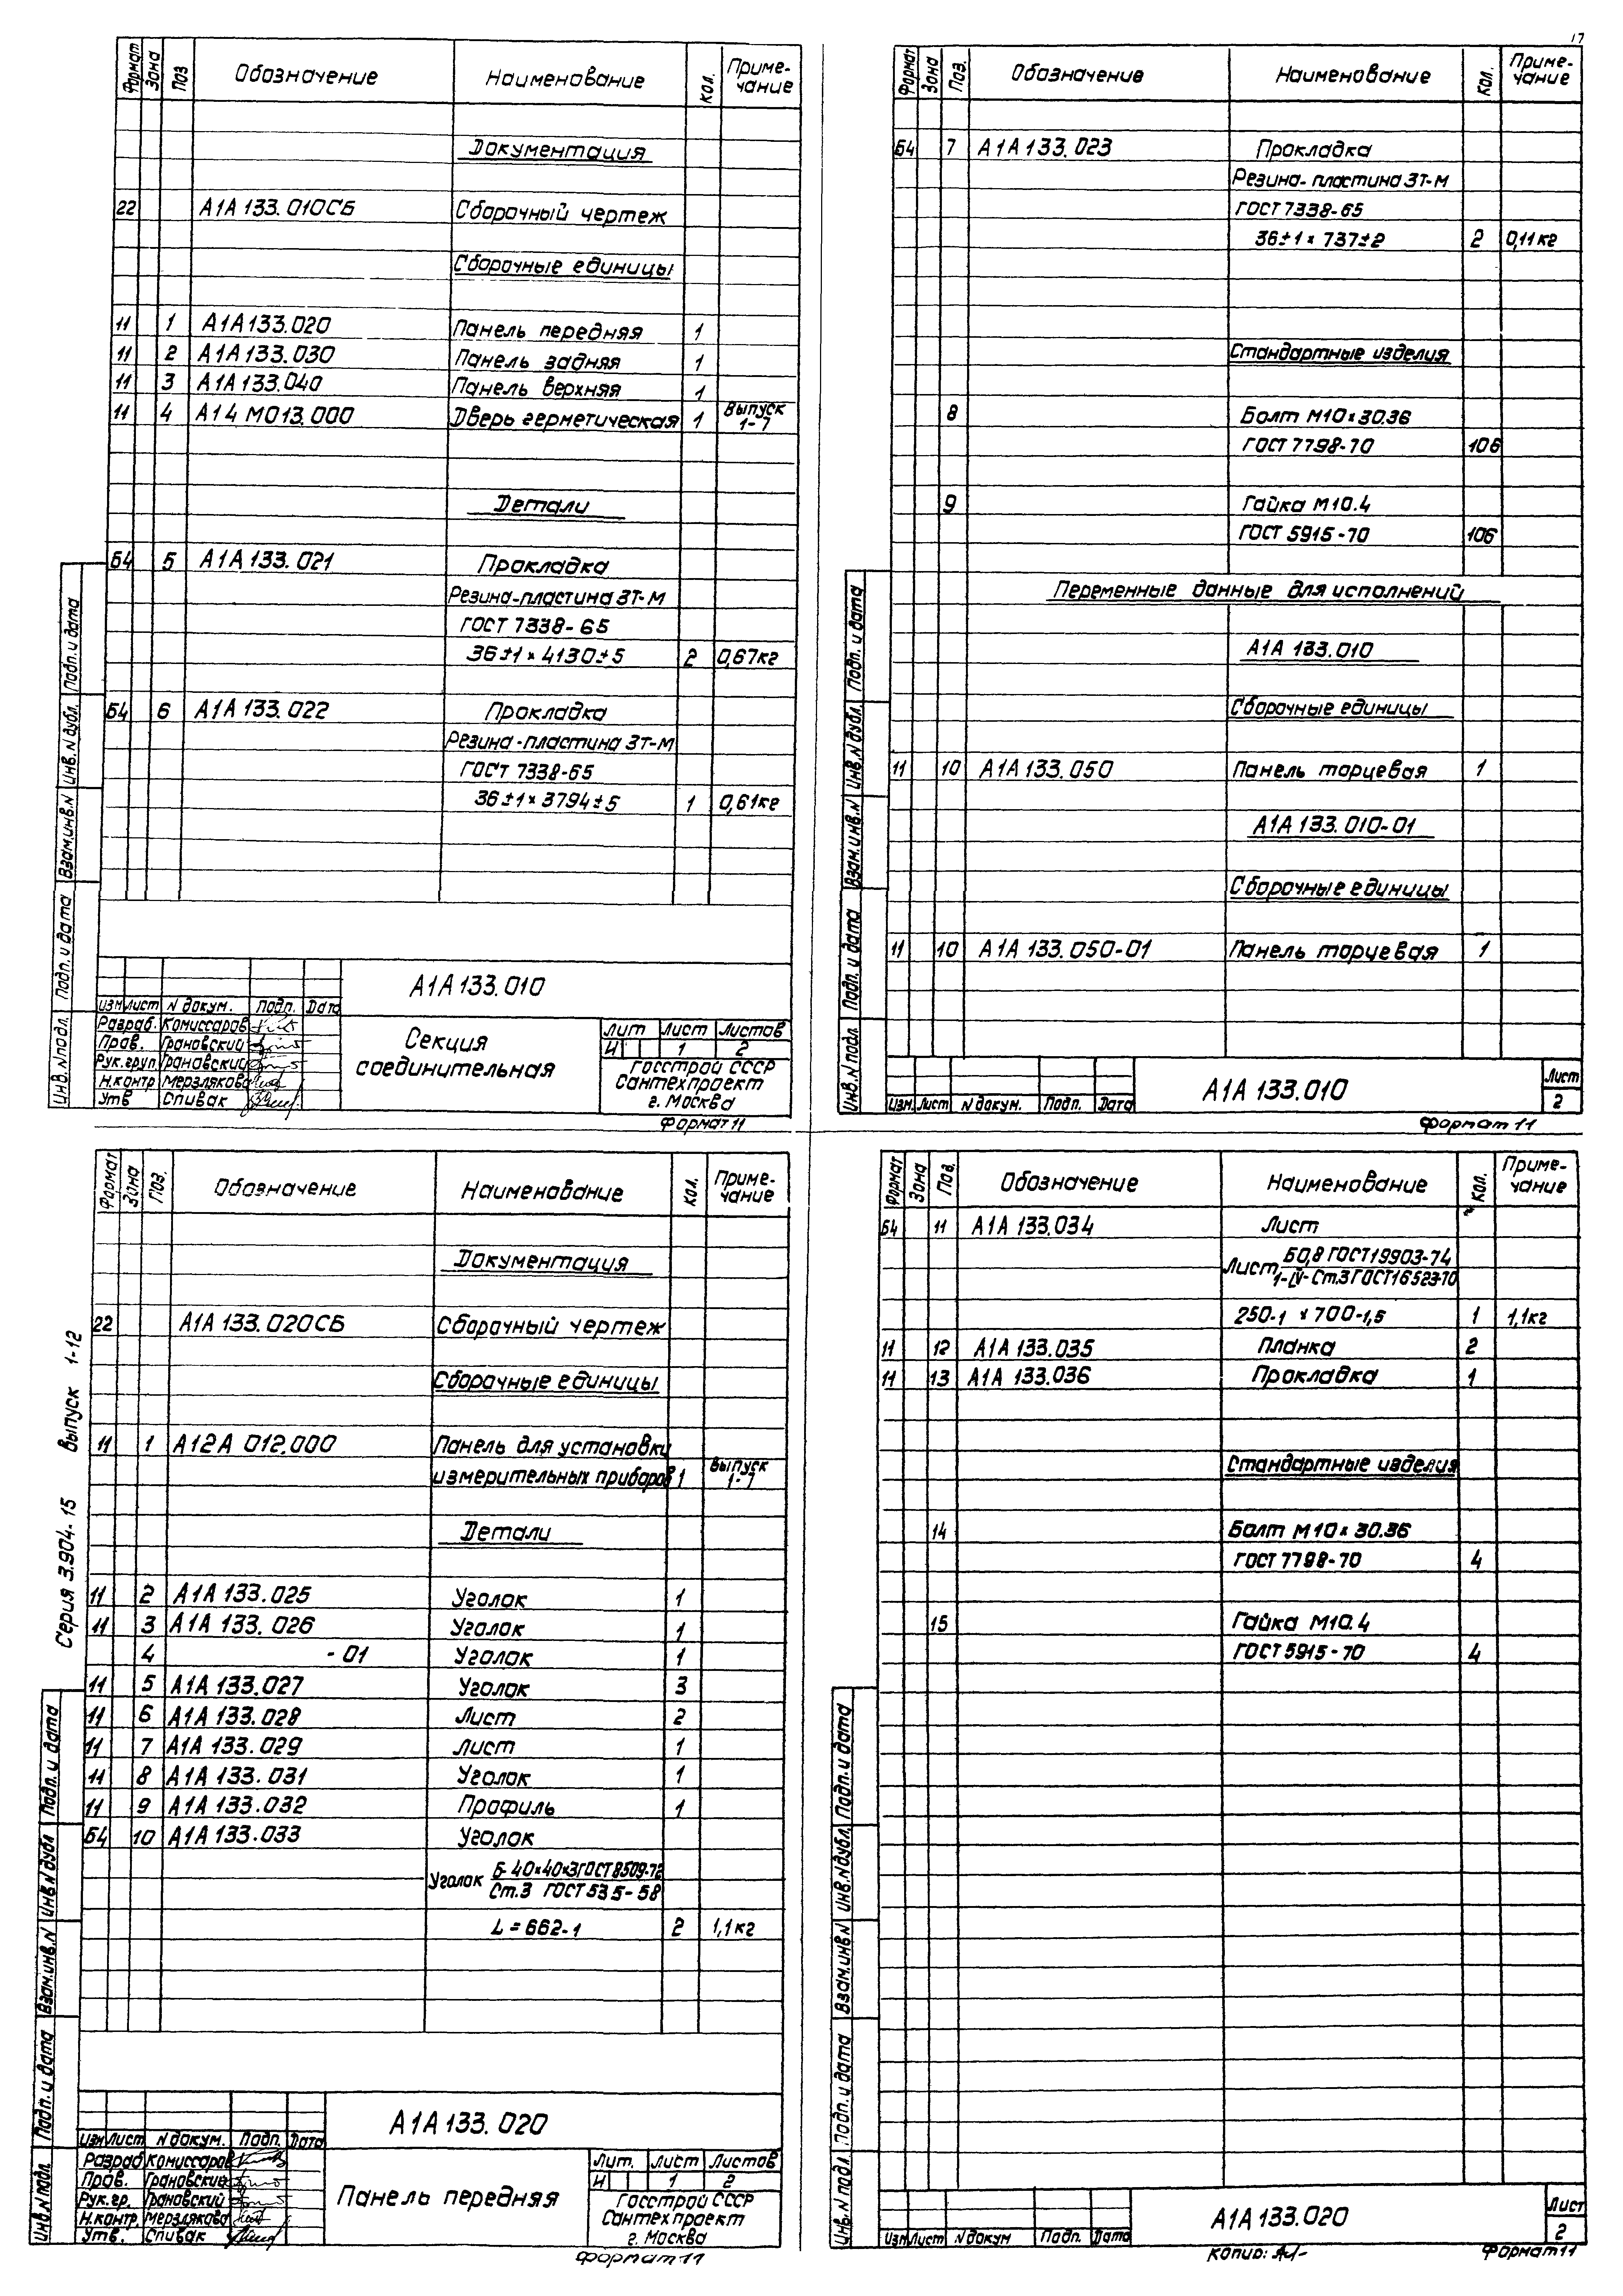 17
Формат Зона Поз Обозначение Наименование Кол. Приме-
чание
Документация
22 А1А 133.010СБ Сборочный чертеж
Сборочные единицы
11 1 А1А133.020 Панель передняя 1
11 2 А1А133.030 Панель задняя 1
11 3 А1А133.040 Панель верхняя 1
11 4 А14 М013.000 Дверь герметическая 1 Выпуск
1-7
Детали
Б4 5 А1А133.021 Прокладка
Резина-пластина 3Т-М
ГОСТ 7338-65
36±1×4130±5 2 0,67кг
Б4 6 А1А 133.022 Прокладка
Резина-пластина 3Т-М
ГОСТ 7338-65
36±1×3794±5 1 0,61кг
Инв.Nподл. Подп.и дата Взам.инв.N Инв.N дубл. Подп.и дата
А1А133.010
Изм Лист N докум. Подп. Дата
Разраб. Комиссаров
Пров. Грановский
Рук.груп. Грановский
Н.контр Мерзлякова
Утв Спивак
Секция
соединительная
Лит Лист Листов
И 1 2
Госстрой СССР
Сантехпроект
г. Москва
Формат 11
Формат Зона Поз. Обозначение Наименование Кол. Приме-
чание
Б4 7 А1А133.023 Прокладка
Резина-пластина 3Т-М
ГОСТ 7338-65
36±1×737±2 2 0,11кг
Стандартные изделия
8 Болт М10×30.36
ГОСТ 7798-70 106
9 Гайка М10.4
ГОСТ 5915-70 106
Переменные данные для исполнений
А1А 133.010
Сборочные единицы
11 10 А1А133.050 Панель торцевая 1
А1А 133.010-01
Сборочные единицы
11 10 А1А 133.050-01 Панель торцевая 1
Инв.N подл. Подп.и дата Взам.инв.N Инв.N дубл. Подп.и дата
Изм. Лист N докум. Подп. Дата
А1А 133.010
Лист
2
Формат 11
Серия 3.904-15 выпуск 1-12
Формат Зона Поз. Обозначение Наименование Кол. Приме-
чание
Документация
22 А1А 133.020СБ Сборочный чертеж
Сборочные единицы
11 1 А12А 012.000 Панель для установки
измерительных приборов 1 выпуск
1-7
Детали
11 2 А1А 133.025 Уголок 1
11 3 А1А 133.026 Уголок 1
4 -01 Уголок 1
11 5 А1А 133.027 Уголок 3
11 6 А1А 133.028 Лист 2
11 7 А1А 133.029 Лист 1
11 8 А1А 133.031 Уголок 1
11 9 А1А 133.032 Профиль 1
Б4 10 А1А 133.033 Уголок
Уголок Б-40×40×3ГОСТ8509-72
Ст.3 ГОСТ535-58
L=662-1 2 1,1кг
Инв.N подл. Подп.и дата Взам.инв.N Инв.N дубл Подп.и дата
А1А133.020
Изм Лист N докум. Подп. Дата
Разраб Комиссаров
Пров. Грановский
Рук.гр. Грановский
Н.контр. Мерзлякова
Утв. Спивак
Панель передняя
Лит. Лист Листов
И 1 2
Госстрой СССР
Сантехпроект
г. Москва
Формат 11
Формат Зона Поз. Обозначение Наименование Кол. Приме-
чание
Б4 11 А1А 133.034 Лист
Лист Б0,8 ГОСТ19903-74
1-IV-Ст.3ГОСТ16523-70
250-1 × 700-1,5 1 1,1кг
11 12 А1А 133.035 Планка 2
11 13 А1А 133.036 Прокладка 1
Стандартные изделия
14 Болт М10×30.36
ГОСТ 7798-70 4
15 Гайка М10.4
ГОСТ 5915-70 4
Инв.N подл Подп.и дата Взам.инв.N Инв.N дубл. Подп.и дата
Изм Лист N докум Подп. Дата
А1А 133.020
Лист
2
Копир:
Формат 11